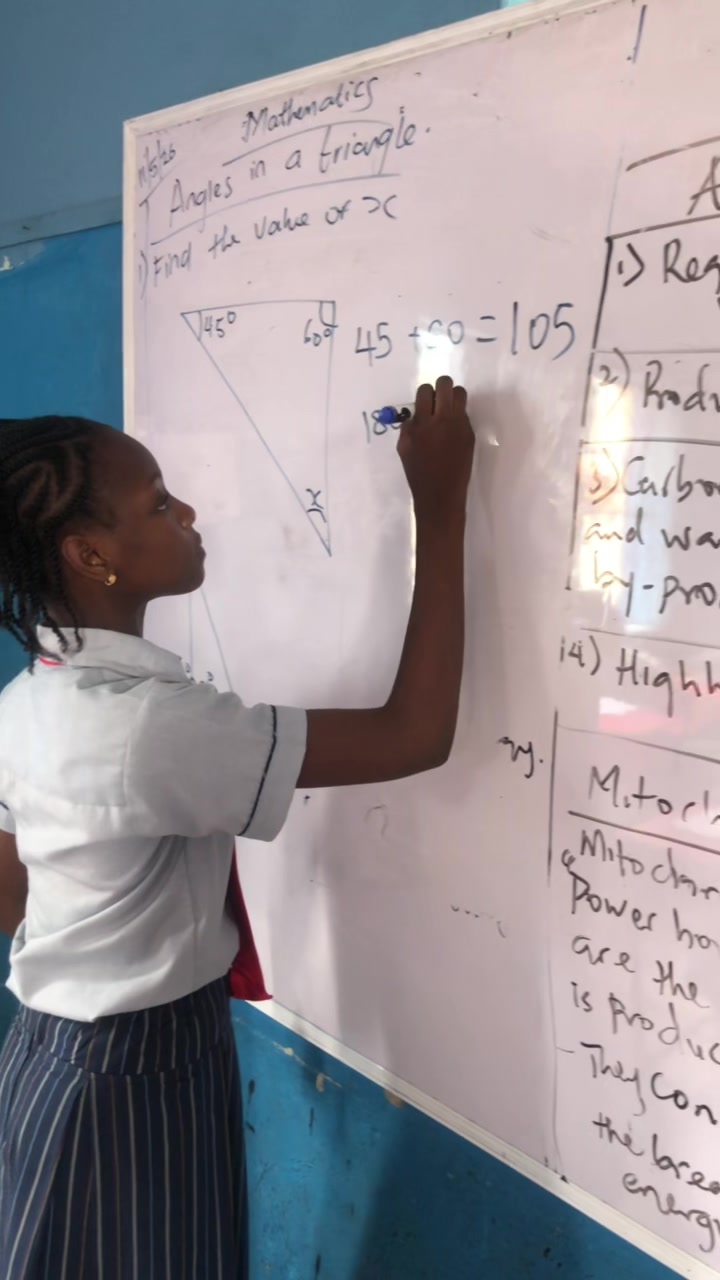 Mathematics
11/5/26
Angles in a triangle.
1) Find the value of x
45°
60°
x
45 + 60 = 105
18
A
1) Rea
2) Produ
3) Carbo
and wa
by-pro
14) Highl
Mitoch
Mitochon
Power hou
are the
is produc
- They con
the brea
energy